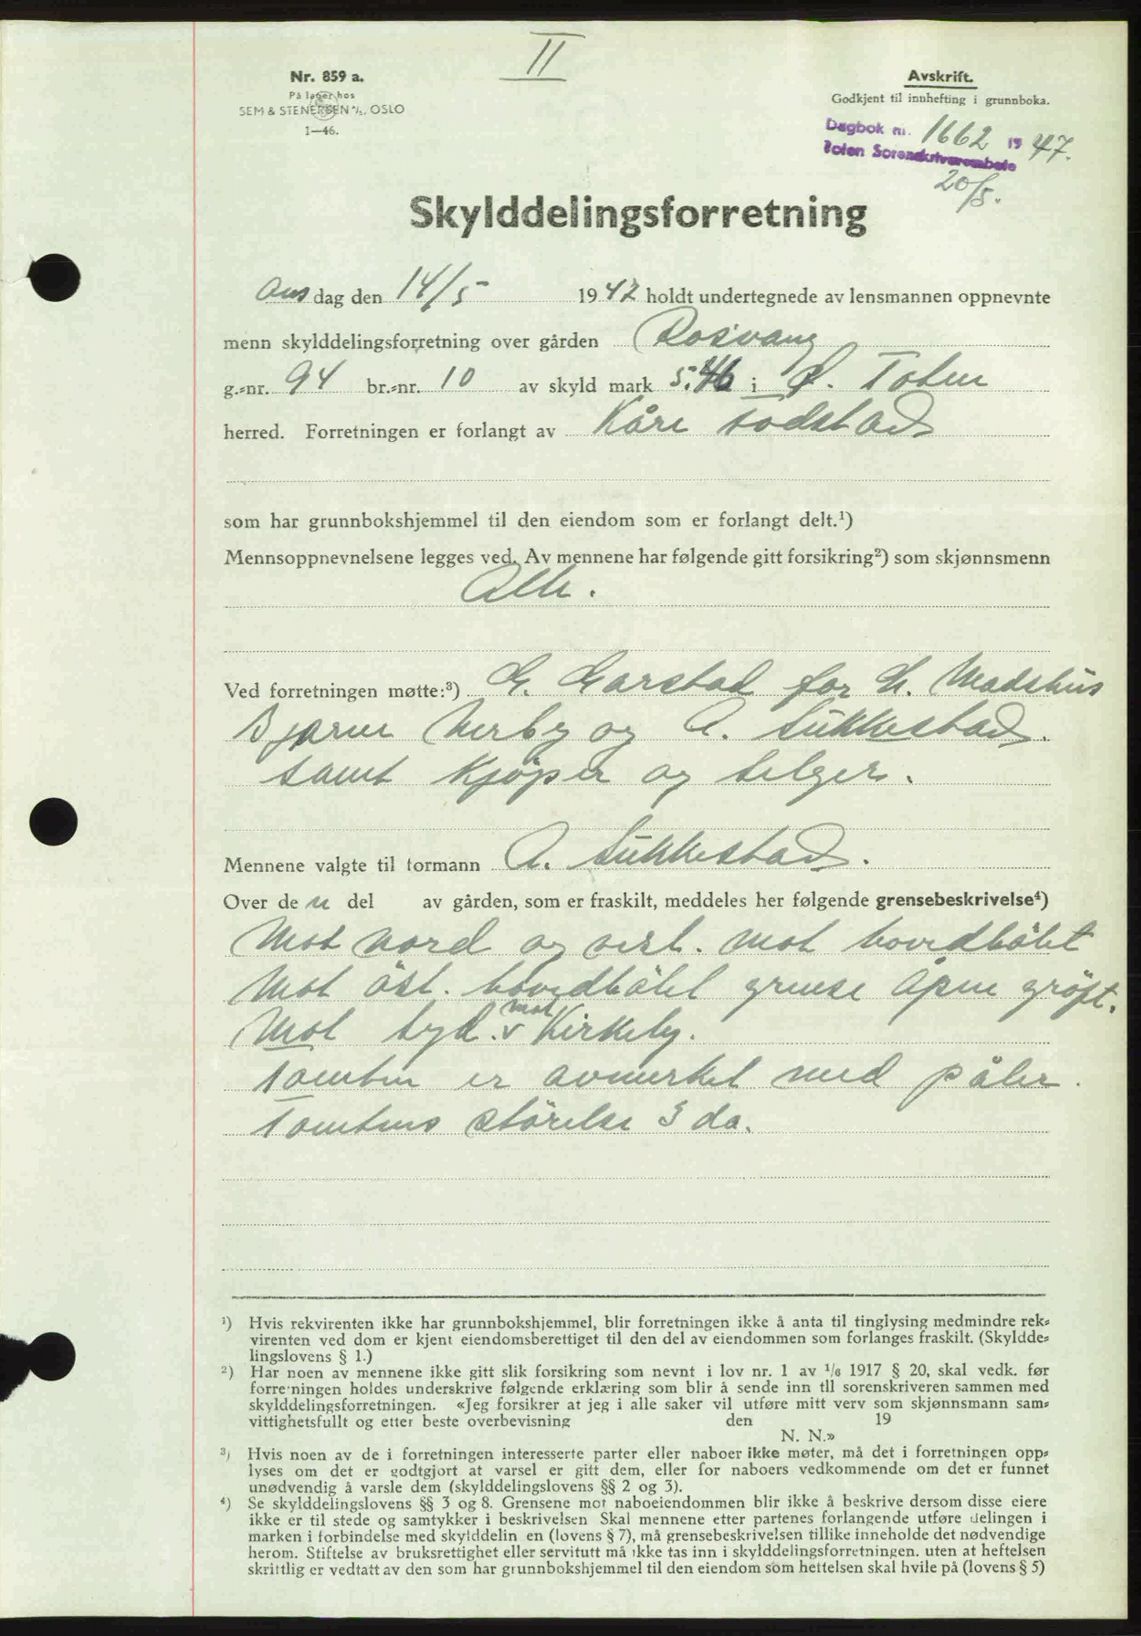 II
Nr. 859 a.
På lager hos
SEM & STENERSEN A/S, OSLO
1—46.
Avskrift.
Godkjent til innhefting i grunnboka.
Dagbok nr. 1662 1947.
Toten Sorenskriverembete
20/5.
Skylddelingsforretning
Ons dag den 14/5 1947 holdt undertegnede av lensmannen oppnevnte
menn skylddelingsforretning over gården Rosvang
g.-nr. 94 br.-nr. 10 av skyld mark 5.46 i Ø. Toten
herred. Forretningen er forlangt av Kåre Sodstad
som har grunnbokshjemmel til den eiendom som er forlangt delt.¹)
Mennsoppnevnelsene legges ved. Av mennene har følgende gitt forsikring²) som skjønnsmenn
Alle.
Ved forretningen møtte:³) G. Garstad for H. Madshus
Bjarne Nerby og A. Sukkestad.
samt kjøper og selger.
Mennene valgte til formann A. Sukkestad.
Over de n del av gården, som er fraskilt, meddeles her følgende grensebeskrivelse⁴)
Mot nord og vest. mot hovedbölet
Mot öst. hovedbölet grense åpen gröft.
Mot syd. mot Kirkeby.
Tomten er avmerket med påler.
Tomtens störelse 3 da.
¹) Hvis rekvirenten ikke har grunnbokshjemmel, blir forretningen ikke å anta til tinglysing medmindre rek-
virenten ved dom er kjent eiendomsberettiget til den del av eiendommen som forlanges fraskilt. (Skyldde-
lingslovens § 1.)
²) Har noen av mennene ikke gitt slik forsikring som nevnt i lov nr. 1 av 1/6 1917 § 20, skal vedk. før
forretningen holdes underskrive følgende erklæring som blir å sende inn til sorenskriveren sammen med
skylddelingsforretningen. «Jeg forsikrer at jeg i alle saker vil utføre mitt verv som skjønnsmann sam-
vittighetsfullt og etter beste overbevisning den 19
N. N.»
³) Hvis noen av de i forretningen interesserte parter eller naboer ikke møter, må det i forretningen opp-
lyses om det er godtgjort at varsel er gitt dem, eller for naboers vedkommende om det er funnet
unødvendig å varsle dem (skylddelingslovens §§ 2 og 3).
⁴) Se skylddelingslovens §§ 3 og 8. Grensene mot naboeiendommen blir ikke å beskrive dersom disse eiere
ikke er til stede og samtykker i beskrivelsen Skal mennene etter partenes forlangende utføre delingen i
marken i forbindelse med skylddelingen (lovens § 7), må grensebeskrivelsen tillike inneholde det nødvendige
herom. Stiftelse av bruksrettighet eller servitutt må ikke tas inn i skylddelingsforretningen. uten at heftelsen
skriftlig er vedtatt av den som har grunnbokshjemmel til den eiendom som heftelsen skal hvile på (lovens § 5)